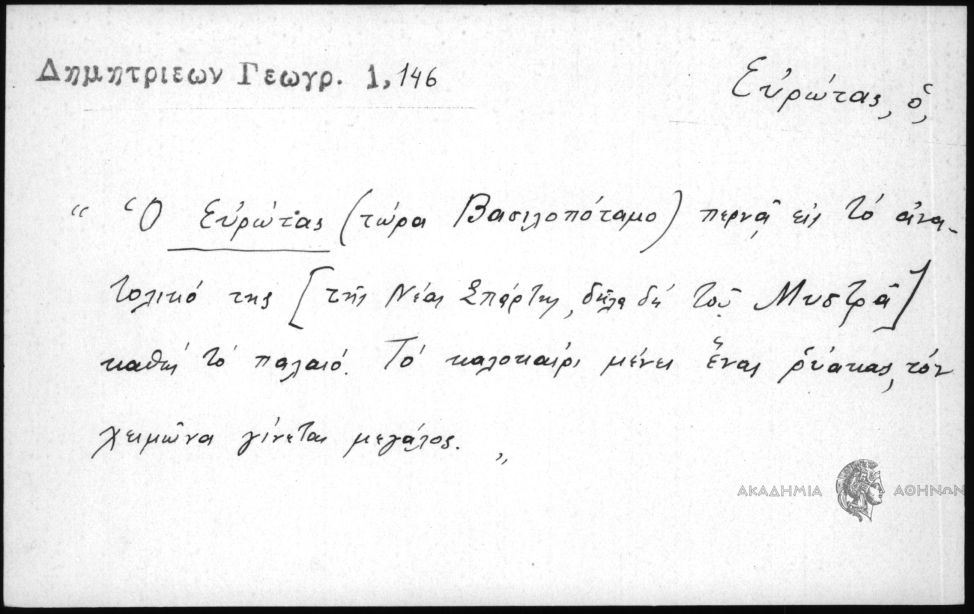 Δημητριεων Γεωγρ. 1, 146
Εὐρώτας, ὁ,
“ Ὁ Εὐρώτας (τώρα Βασιλοπόταμο) περνᾷ εἰς τὸ ἀνα-
τολικό της [τῆς Νέας Σπάρτης, δῆλα δή τοῦ Μυστρᾶ]
καθὼς τὸ παλαιό. Τὸ καλοκαίρι μένει ἕνας ῥύακας, τὸν
χειμῶνα γίνεται μεγάλος. „
ΑΚΑΔΗΜΙΑ ΑΘΗΝΩΝ